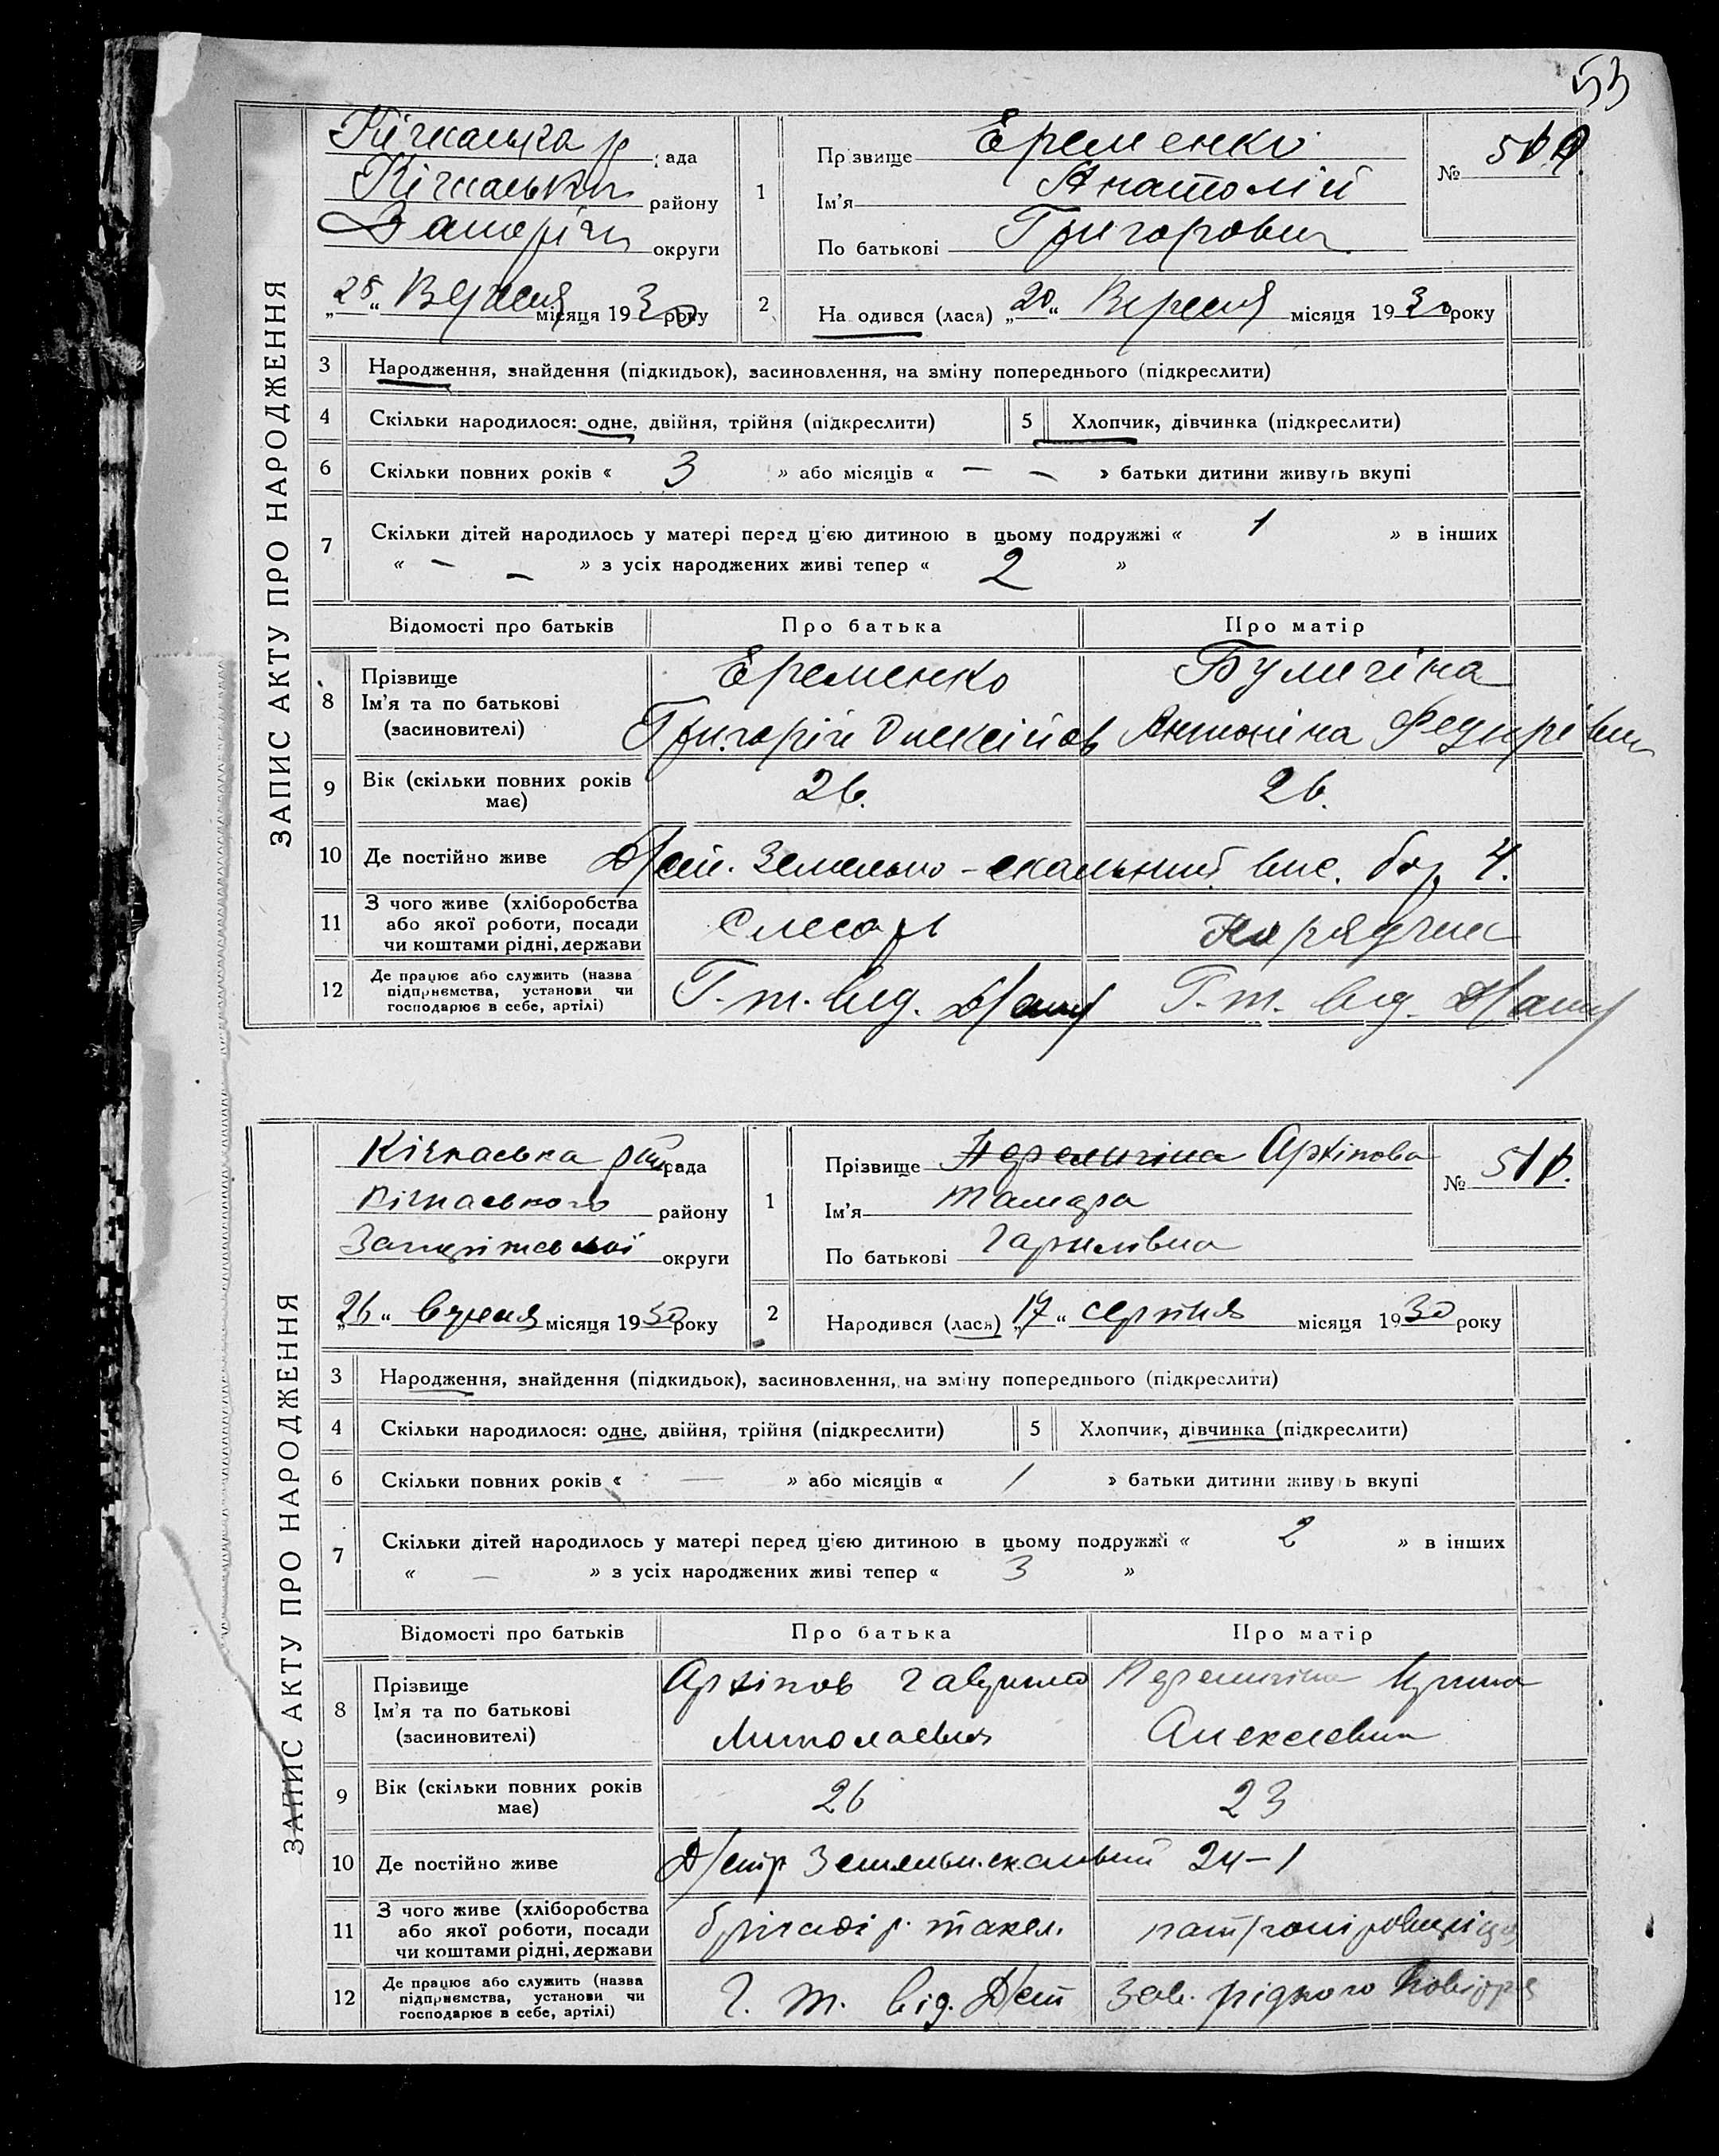 53
ЗАПИС АКТУ ПРО НАРОДЖЕННЯ
Кічкаська р ;ада
Кічкаськ району
Запоріж округи
„28“ Вересня місяця 1930 року
1
Пр звище Еременко
Ім'я Анатолій
По батькові Григорович
№
2 На одився (лася) „20“ Вересня місяця 1930 року
3 Народження, знайдення (підкидьок), засиновлення, на зміну попереднього (підкреслити)
4 Скільки народилося: одне, двійня, трійня (підкреслити) 5 Хлопчик, дівчинка (підкреслити)
6 Скільки повних років « 3 » або місяців « – – » батьки дитини живуть вкупі
7 Скільки дітей народилось у матері перед цією дитиною в цьому подружжі « 1 » в інших
« – – » з усіх народжених живі тепер « 2 »
Відомості про батьків Про батька Про матір
8 Прізвище Еременко Булигіна
Ім'я та по батькові
(засновителі) Григорій Олексійов Антоніна Федорівна
9 Вік (скільки повних років має) 26. 26.
10 Де постійно живе Земельно-скальний вис. бар. 4.
11 З чого живе (хліборобства
або якої роботи, посади
чи коштами рідні, держави Слесарь
12 Де працює або служить (назва
підприємства, установи чи
господарює в себе, артілі) Г. т. від. Г. т. від.
ЗАПИС АКТУ ПРО НАРОДЖЕННЯ
Кічкаська рада
Кічкаського району
Запоріжської округи
„26“ вересня місяця 1930 року
1
Прізвище Архіпова
Ім'я Тамара
По батькові Гаврилівна
№
2 Народився (лася) „17“ серпня місяця 1930 року
3 Народження, знайдення (підкидьок), засиновлення, на зміну попереднього (підкреслити)
4 Скільки народилося: одне, двійня, трійня (підкреслити) 5 Хлопчик, дівчинка (підкреслити)
6 Скільки повних років « — » або місяців « 1 » батьки дитини живу ь вкупі
7 Скільки дітей народилось у матері перед цією дитиною в цьому подружжі « 2 » в інших
« — » з усіх народжених живі тепер « 3 »
Відомості про батьків Про батька Про матір
8 Прізвище Архіпов Гаврило Ирина
Ім'я та по батькові
(засиновителі) Миколаевич Алексеевна
9 Вік (скільки повних років має) 26 23
10 Де постійно живе Д/стр Земельн. скальний 24–1
11 З чого живе (хліборобства
або якої роботи, посади
чи коштами рідні, держави брігадір. такел.
12 Де працює або служить (назва
підприємства, установи чи
господарює в себе, артілі) Г. т. від. Зав. рідкого повітря